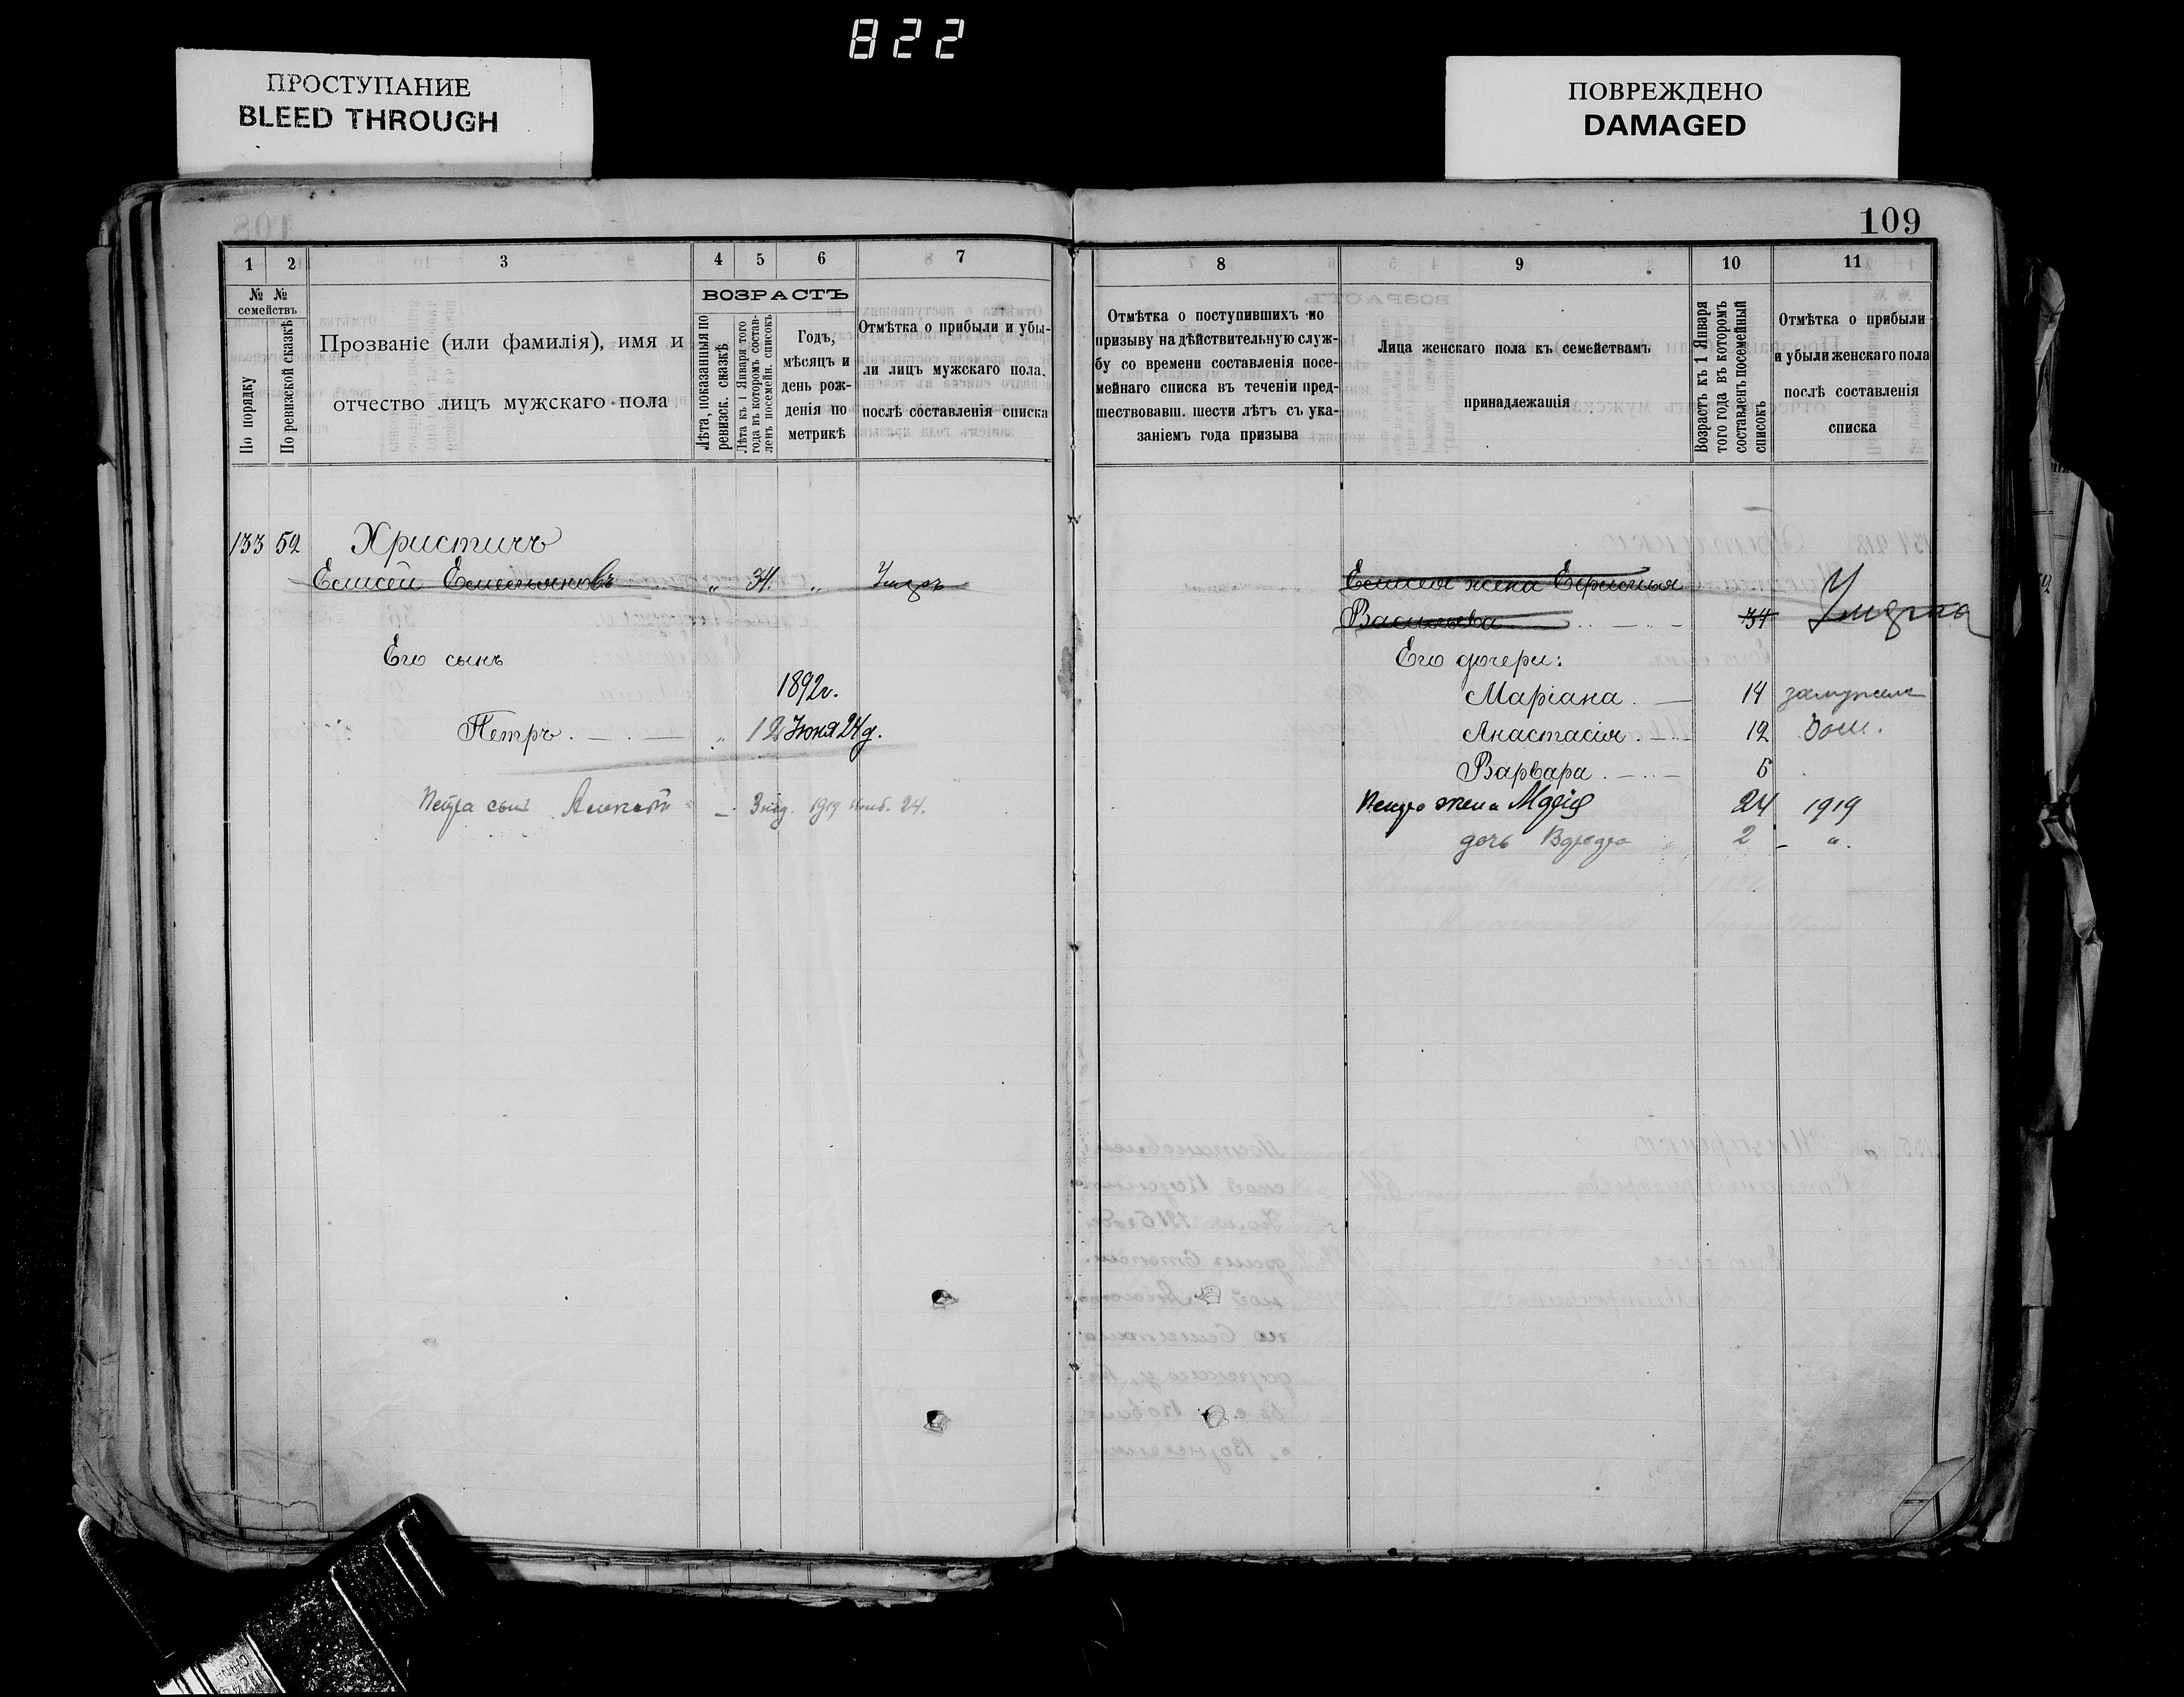 822
ПРОСТУПАНИЕ
BLEED THROUGH
ПОВРЕЖДЕНО
DAMAGED
109
1 2 3 4 5 6 7
№ № семействъ
По порядку
По ревизской сказкѣ
Прозваніе (или фамилія), имя и
отчество лицъ мужскаго пола
ВОЗРАСТЪ
Лѣта, показанныя по
ревизск. сказкѣ
Лѣта къ 1 Января того
года въ которомъ состав-
ленъ посемейн. списокъ
Годъ,
мѣсяцъ и
день рож-
денія по
метрикѣ
Отмѣтка о прибыли и убы-
ли лицъ мужскаго пола,
послѣ составленія списка
8 9 10 11
Отмѣтка о поступившихъ по
призыву на дѣйствительную служ-
бу со времени составленія посе-
мейнаго списка въ теченіи пред-
шествовавш. шести лѣтъ съ ука-
заніемъ года призыва
Лица женскаго пола къ семействамъ
принадлежащія
Возрастъ къ 1 Января
того года въ которомъ
составленъ посемейный
списокъ
Отмѣтка о прибыли
и убыли женскаго пола
послѣ составленія
списка
133 52 Христичъ
Елисей Емельяновъ " " Умеръ
Его сынъ
1892г.
Петръ " 12 Іюня 24 д.
Петра сынъ Алексѣй 3 нед. 1919 24.
Елисея жена Ефросинья
Васильева 34 Умерла
Его дочери:
Маріана 14 замужем
Анастасія 12
Варвара 6
Петра жена Марія 24 1919
дочь Варвара 2 "